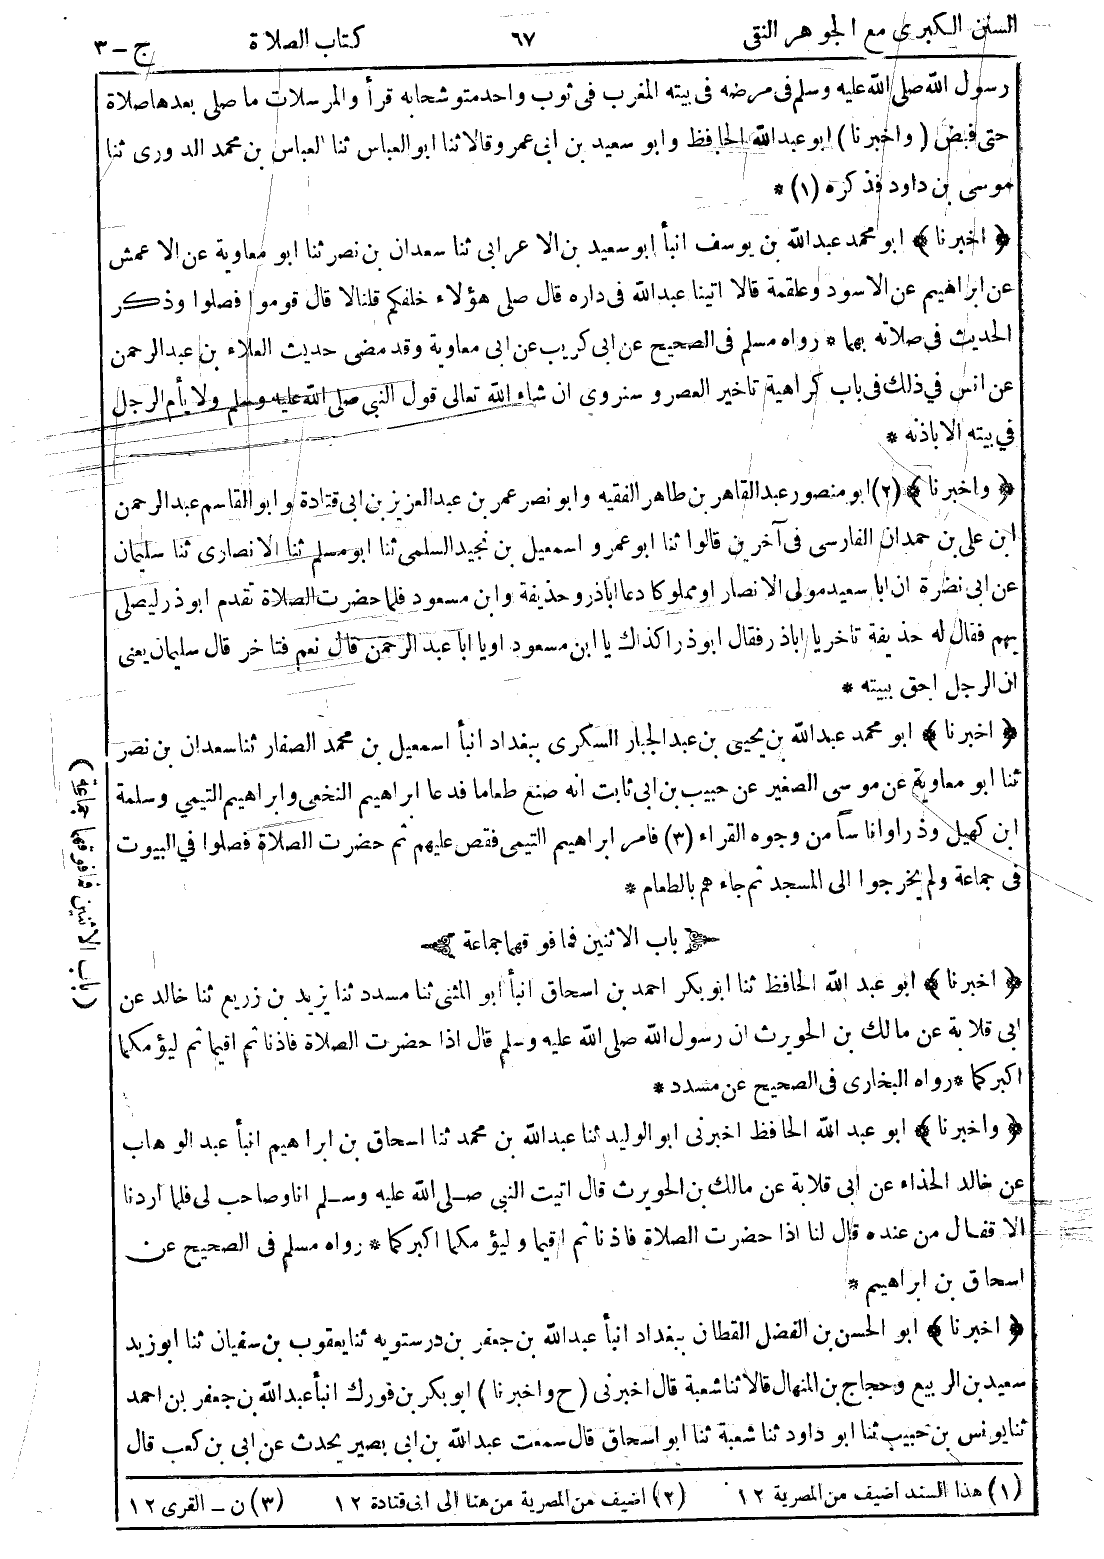 السنن الكبرى مع الجوهر النقى ٦٧ كتاب الصلاة ج - ٣
رسول الله صلى الله عليه وسلم فى مرضه فى بيته المغرب فى ثوب واحد متوشحا به قرأ والمرسلات ما صلى بعدها صلاة
حتى قبض (واخبرنا) ابو عبد الله الحافظ وابو سعيد بن ابى عمرو قالا ثنا ابو العباس ثنا العباس بن محمد الدورى ثنا
موسى بن داود فذكره (١) *
﴿ اخبرنا ﴾ ابو محمد عبد الله بن يوسف انبأ ابو سعيد بن الاعرابى ثنا سعدان بن نصر ثنا ابو معاوية عن الاعمش
عن ابراهيم عن الاسود وعلقمة قالا اتينا عبد الله فى داره قال صلى هؤلاء خلفكم قلنا لا قال قوموا فصلوا وذكر
الحديث فى صلاته بهما * رواه مسلم فى الصحيح عن ابى كريب عن ابى معاوية وقد مضى حديث العلاء بن عبد الرحمن
عن انس في ذلك فى باب كراهية تاخير العصر وسنروى ان شاء الله تعالى قول النبي صلى الله عليه وسلم ولا يأم الرجل
في بيته الا باذنه *
﴿ واخبرنا ﴾ (٢) ابو منصور عبد القاهر بن طاهر الفقيه وابو نصر عمر بن عبد العزيز بن ابى قتادة وابو القاسم عبد الرحمن
ابن على بن حمدان الفارسى فى آخرين قالوا ثنا ابو عمرو اسمعيل بن نجيد السلمى ثنا ابو مسلم ثنا الانصارى ثنا سليمان
عن ابى نضرة ان ابا سعيد مولى الانصار او مملوكا دعا اباذر وحذيفة وابن مسعود فلما حضرت الصلاة تقدم ابو ذر ليصلى
بهم فقال له حذيفة تاخر يا اباذر فقال ابو ذر اكذاك يا ابن مسعود اويا ابا عبد الرحمن قال نعم فتاخر قال سليمان يعنى
ان الرجل احق ببيته *
﴿ اخبرنا ﴾ ابو محمد عبد الله بن يحيى بن عبد الجبار السكرى ببغداد انبأ اسمعيل بن محمد الصفار ثنا سعدان بن نصر
ثنا ابو معاوية عن موسى الصغير عن حبيب بن ابى ثابت انه صنع طعاما فدعا ابراهيم النخعى وابراهيم التيمي وسلمة
ابن كهيل وذرا واناسا من وجوه القراء (٣) فامر ابراهيم التيمى فقص عليهم ثم حضرت الصلاة فصلوا في البيوت
فى جماعة ولم يخرجوا الى المسجد ثم جاء هم بالطعام *
باب الاثنين فما فوقهما جماعة
(باب الاثنين فما فوقهما جماعة)
﴿ اخبرنا ﴾ ابو عبد الله الحافظ ثنا ابو بكر احمد بن اسحاق انبأ ابو المثنى ثنا مسدد ثنا يزيد بن زريع ثنا خالد عن
ابى قلابة عن مالك بن الحويرث ان رسول الله صلى الله عليه وسلم قال اذا حضرت الصلاة فاذنا ثم اقيما ثم ليؤمكما
اكبركما * رواه البخارى فى الصحيح عن مسدد *
﴿ واخبرنا ﴾ ابو عبد الله الحافظ اخبرنى ابو الوليد ثنا عبد الله بن محمد ثنا اسحاق بن ابراهيم انبأ عبد الوهاب
عن خالد الحذاء عن ابى قلابة عن مالك بن الحويرث قال اتيت النبي صلى الله عليه وسلم انا وصاحب لى فلما اردنا
الاقفال من عنده قال لنا اذا حضرت الصلاة فاذنا ثم اقيما وليؤمكما اكبركما * رواه مسلم فى الصحيح عن
اسحاق بن ابراهيم *
﴿ اخبرنا ﴾ ابو الحسن بن الفضل القطان ببغداد انبأ عبد الله بن جعفر بن درستويه ثنا يعقوب بن سفيان ثنا ابو زيد
سعيد بن الربيع وحجاج بن المنهال قالا ثنا شعبة قال اخبرنى (ح واخبرنا) ابو بكر بن فورك انبأ عبد الله بن جعفر بن احمد
ثنا يونس بن حبيب ثنا ابو داود ثنا شعبة ثنا ابو اسحاق قال سمعت عبد الله بن ابى بصير يحدث عن ابى بن كعب قال
(١) هذا السند اضيف من المصرية ١٢ (٢) اضيف من المصرية من هنا الى ابى قتادة ١٢ (٣) ن - القرى ١٢